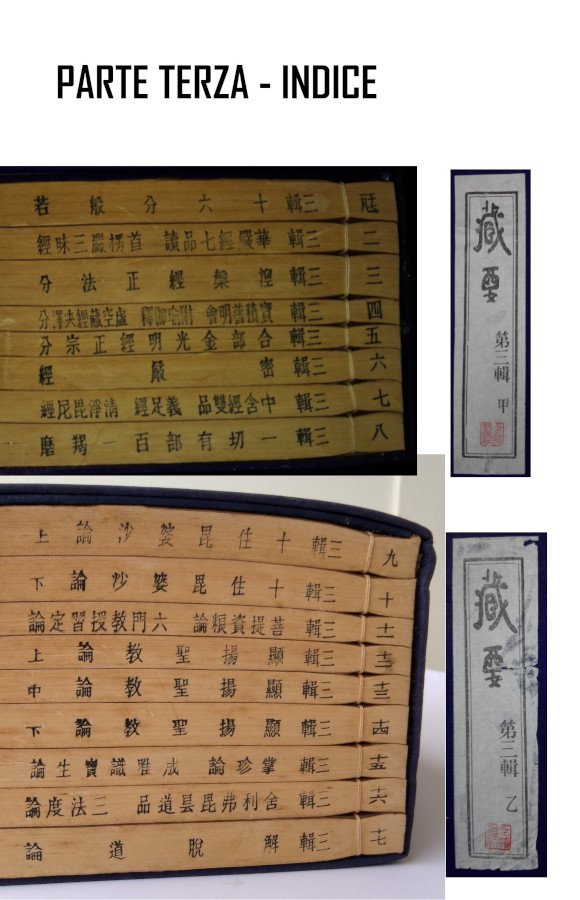 PARTE TERZA - INDICE
三輯 十六分般若
二 三輯 華嚴經七品讀 首楞嚴三昧經
三 三輯 涅槃經正法分
四 三輯 寶積普明會 附瑜伽釋 虛空藏經夬擇分
五 三輯 合部金光明經正宗分
六 三輯 密嚴經
七 三輯 中含經雙品 義足經 清淨毘尼經
八 三輯 一切有部百一羯磨
藏要
第三輯 甲
九 三輯 十住毘婆沙論上
十 三輯 十住毘婆沙論下
十一 三輯 菩提資粮論 六門教授習定論
十二 三輯 顯揚聖教論上
十三 三輯 顯揚聖教論中
十四 三輯 顯揚聖教論下
十五 三輯 掌珍論 成唯識寶生論
十六 三輯 舍利弗毘曇道品 三法度論
十七 三輯 解脫道論
藏要
第三輯 乙